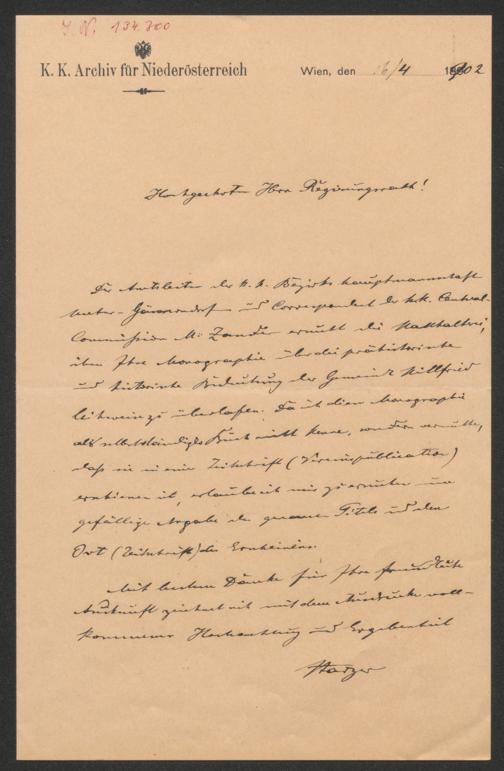 J. N. 134.300
K. K. Archiv für Niederösterreich
Wien, den 16/4 1902
Hochgeehrter Herr Regierungsrath!
Der Amtsleiter der k. k. Bezirkshauptmannschaft
Unter-Gänserndorf und Correspondent der k. k. Central-
Commission M. Zander ersucht die Statthalterei,
ihm Ihre Monographie über die prähistorische
und historische Bedeutung der Gemeinde Stillfried
leihweise zu überlassen. Da ich diese Monographie
als selbstständiges Buch nicht kenne, sondern vermuthe,
daß sie in einer Zeitschrift (Vereinspublication)
erschienen ist, erlaube ich mir zu ersuchen um
gefällige Angabe des genauen Titels und den
Ort (Zeitschrift) des Erscheinens.
Mit bestem Danke für Ihre freundliche
Auskunft zeichnet sich mit dem Ausdrucke voll-
kommener Hochachtung und Ergebenheit
Starzer